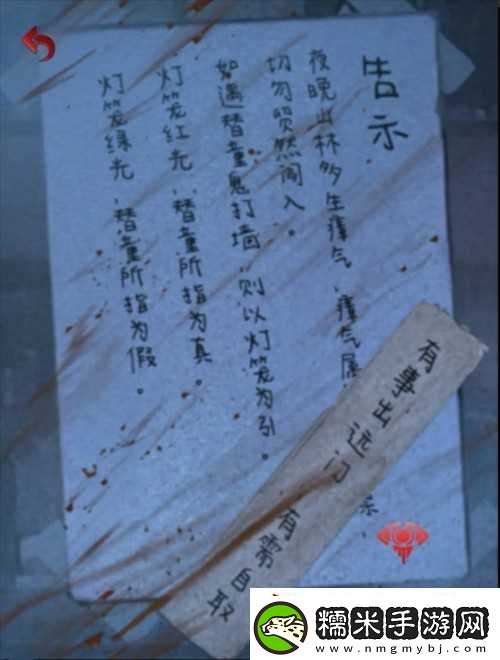 告示
夜晚山林多生瘴气，瘴气属
切勿贸然闯入。
如遇替童鬼打墙，则以灯笼为引。
灯笼红光，替童所指为真。
灯笼绿光，替童所指为假。
有事出远门
有需自取
糯米手游网
www.nmgmybj.com